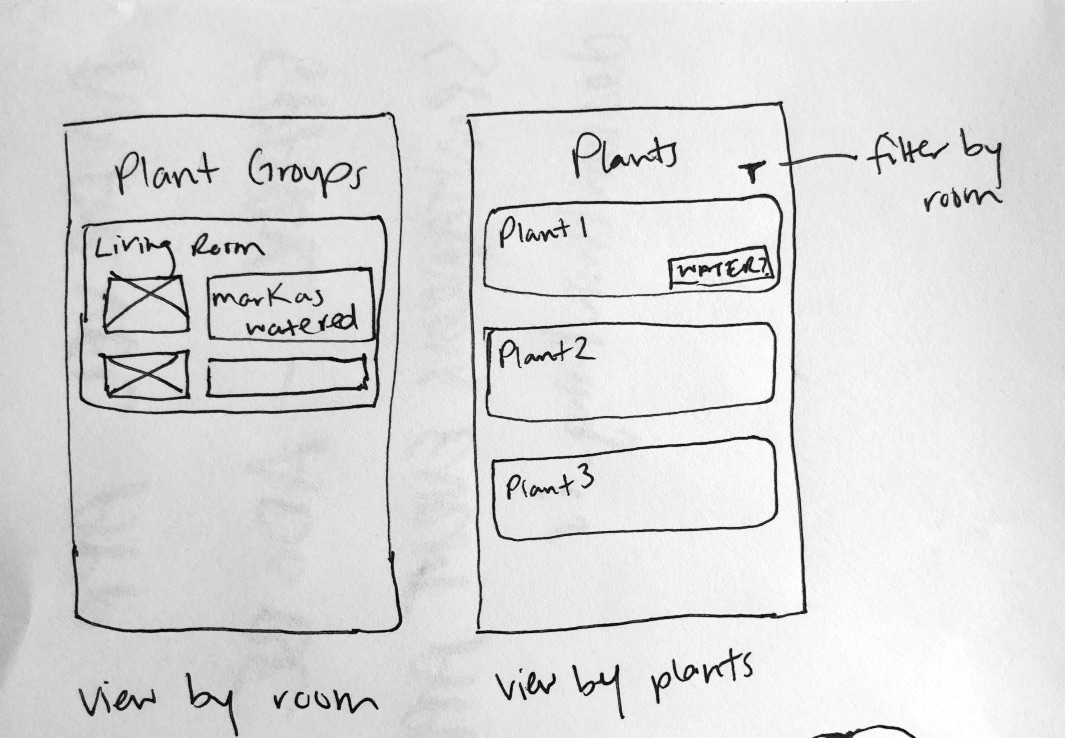 Plant Groups
Living Room
mark as
watered
view by room
Plants
filter by
room
Plant 1
WATER?
Plant 2
Plant 3
view by plants